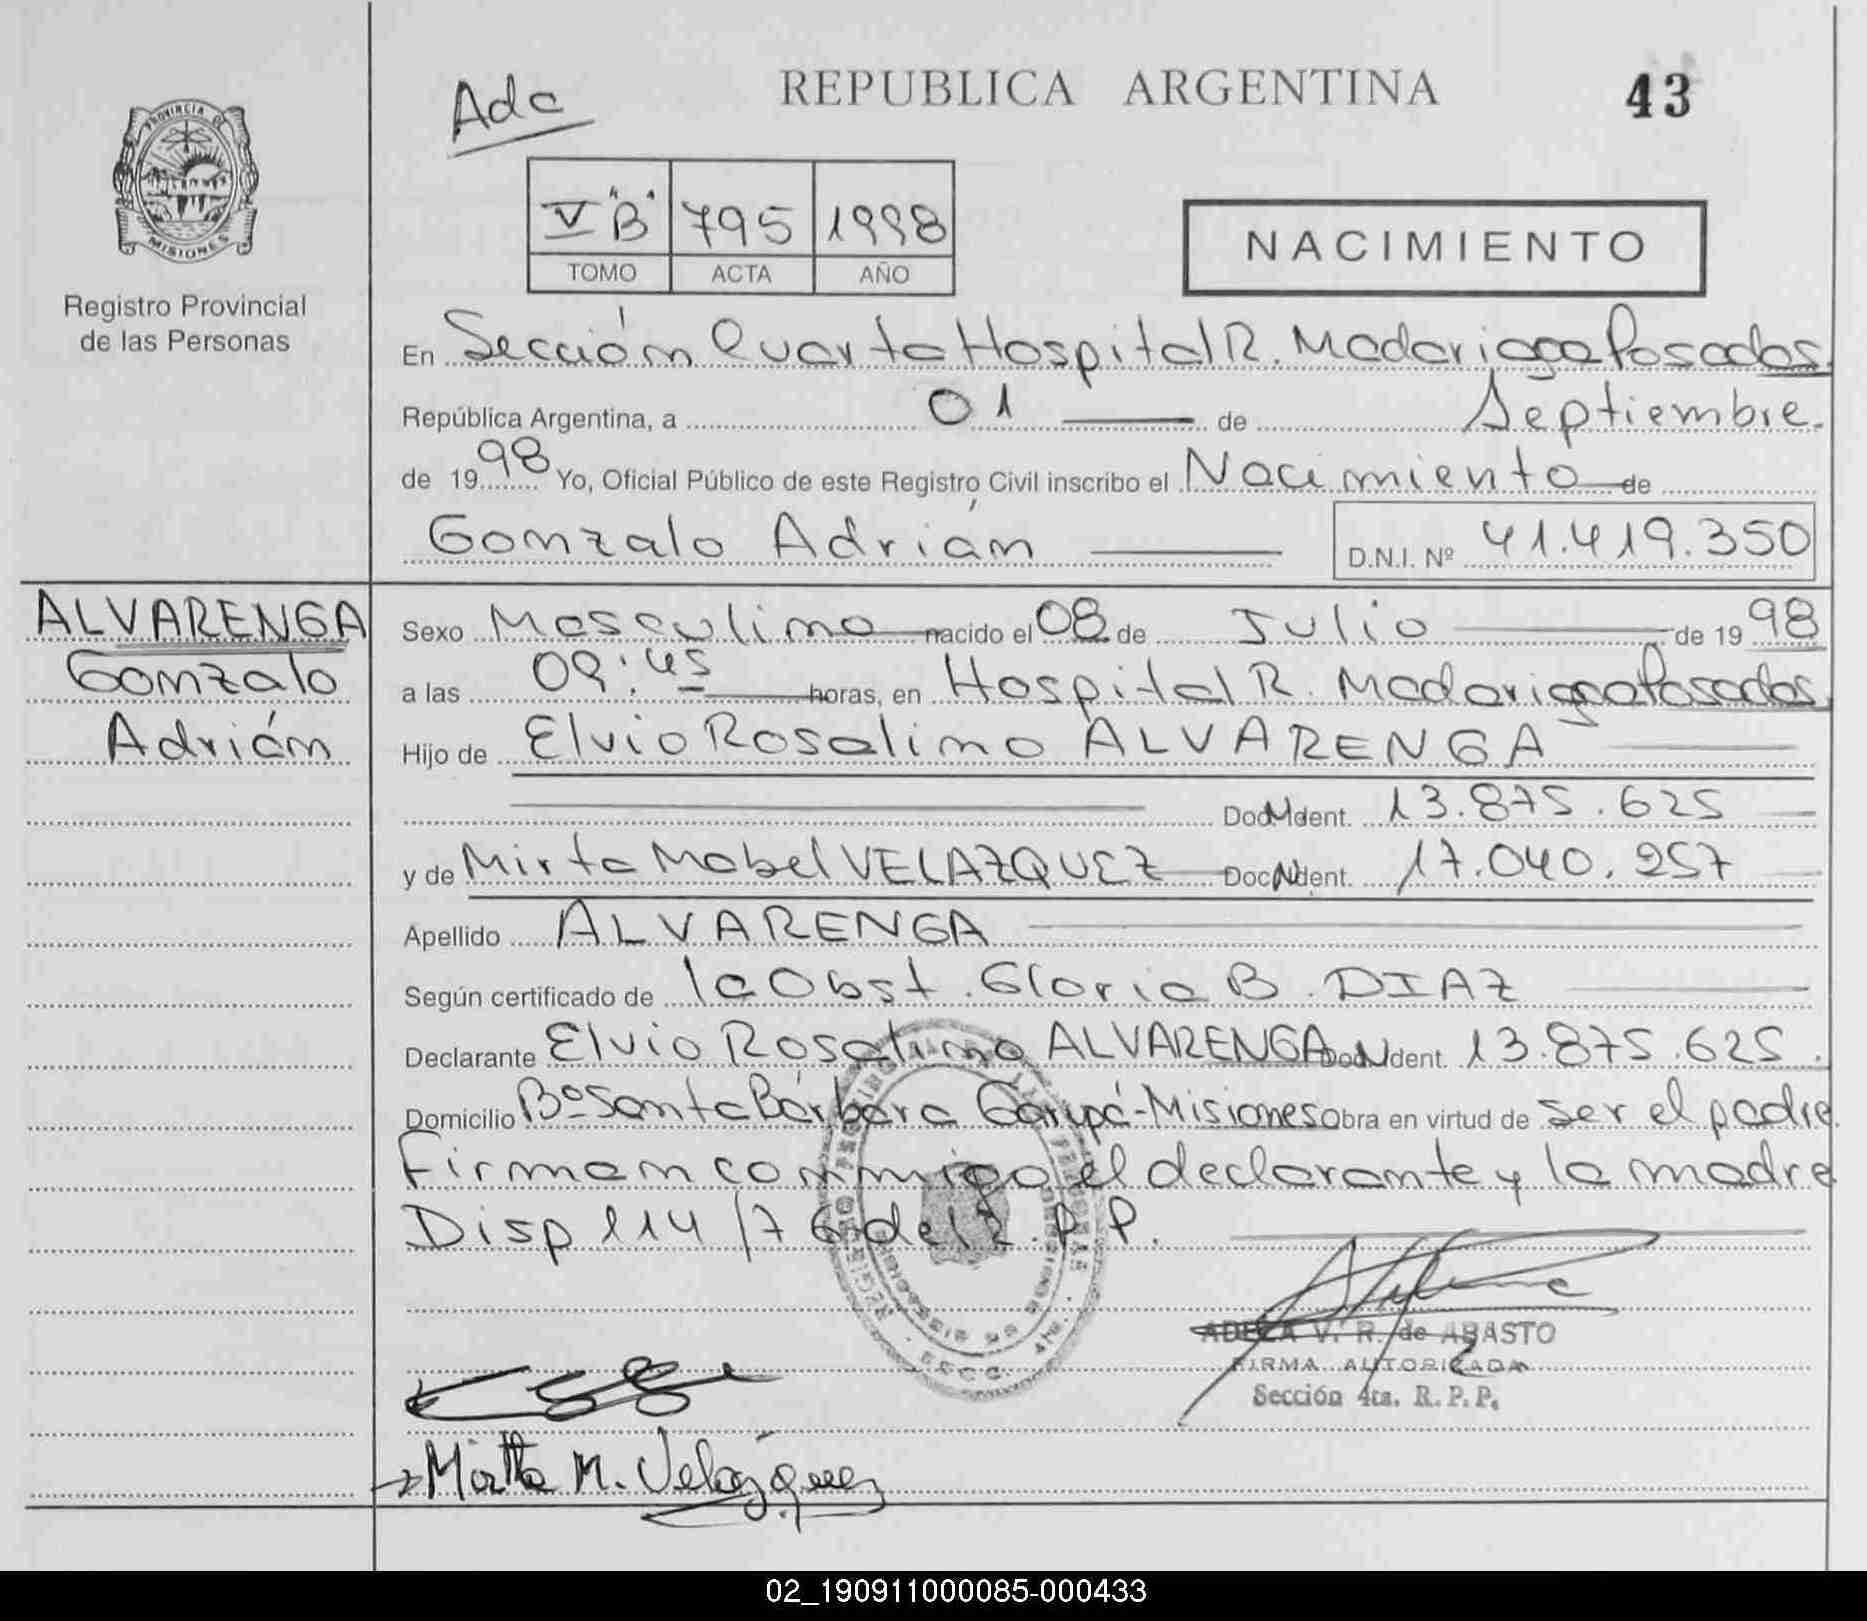 REPUBLICA ARGENTINA
43
Ada
PROVINCIA DE
MISIONES
Registro Provincial
de las Personas
V "B" 795 1998
TOMO ACTA AÑO
NACIMIENTO
En Sección Cuarta Hospital R. Madariaga Posadas.
República Argentina, a 01 de Septiembre.
de 1998 Yo, Oficial Público de este Registro Civil inscribo el Nacimiento de
Gonzalo Adrián D.N.I. Nº 41.419.350
ALVARENGA
Gonzalo
Adrián
Sexo Masculino nacido el 08 de Julio de 1998
a las 09:45 horas, en Hospital R. Madariaga Posadas.
Hijo de Elvio Rosalino ALVARENGA
Doc. Ident. 13.875.625
y de Mirta Mabel VELAZQUEZ Doc. Ident. 17.040.257
Apellido ALVARENGA
Según certificado de la Obst. Gloria B. DIAZ
Declarante Elvio Rosalino ALVARENGA Doc. Ident. 13.875.625.
Domicilio Bº Santa Bárbara Garupá-Misiones Obra en virtud de ser el padre
Firman conmigo el declarante y la madre
Disp 114/76 del R.P.P.
ADELA V. R. de ABASTO
FIRMA AUTORIZADA
Sección 4ta. R. P. P.
Mirtha M. Velázquez
02_190911000085-000433